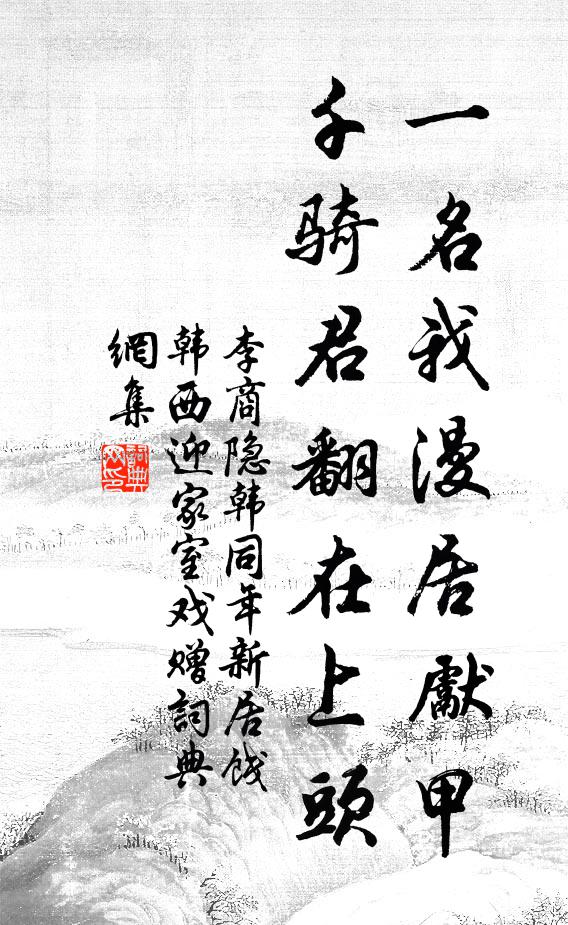 一名我漫居獻甲
千騎君翻在上頭
李商隐韩同年新居饯
韩西迎家室戏赠詞典
網集
詞典
网印